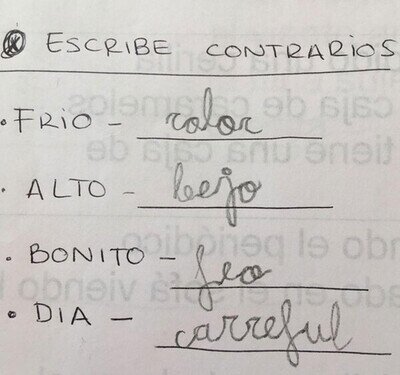 ESCRIBE CONTRARIOS
• FRIO – calor
• ALTO – bejo
• BONITO – feo
• DIA – carreful